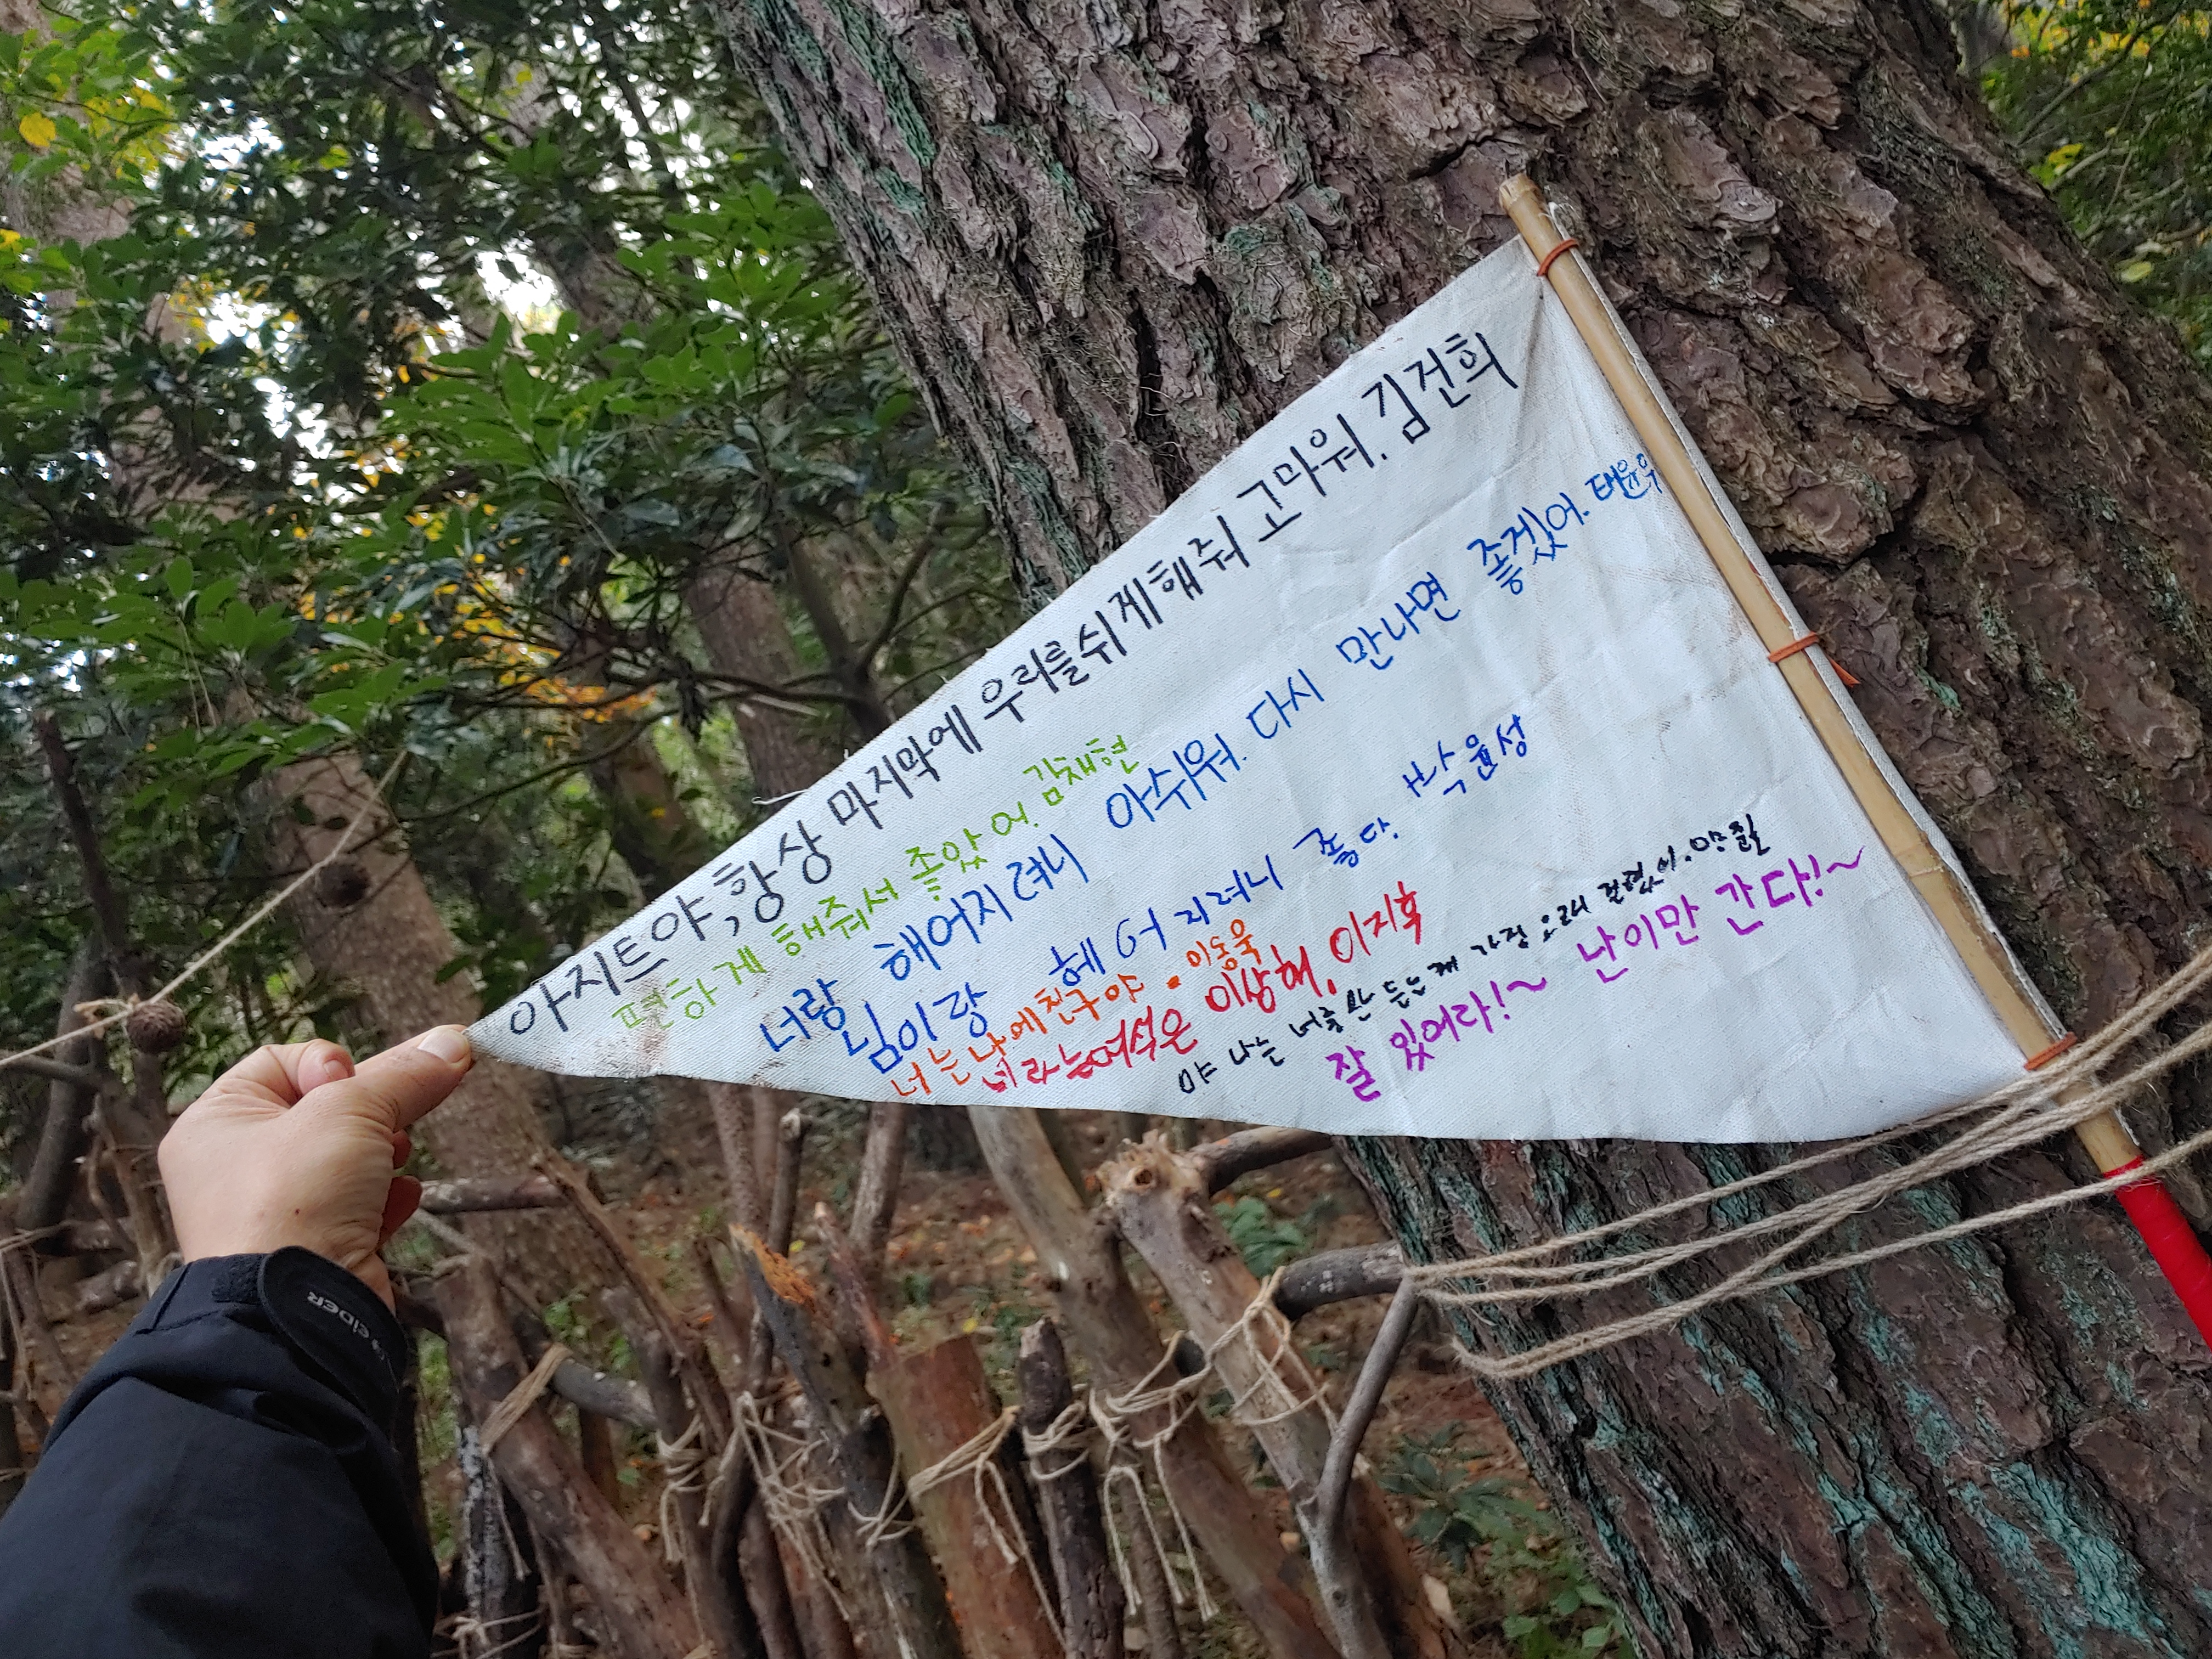 아지트야, 항상 마지막에 우리를쉬게해줘 고마워. 김건희
편하게 해줘서 좋았어. 김채현
너랑 해어지려니 아쉬워. 다시 만나면 좋겠어. 태윤우
님이랑 헤어지려니 좋다. 박윤성
너는 나에 친구야. 이동욱
너라는여석은 이상해. 이지후
야 나는 너를 는게 가정 오래 걸렸어.
잘 있어라!~ 난이만 간다!~
EIDER